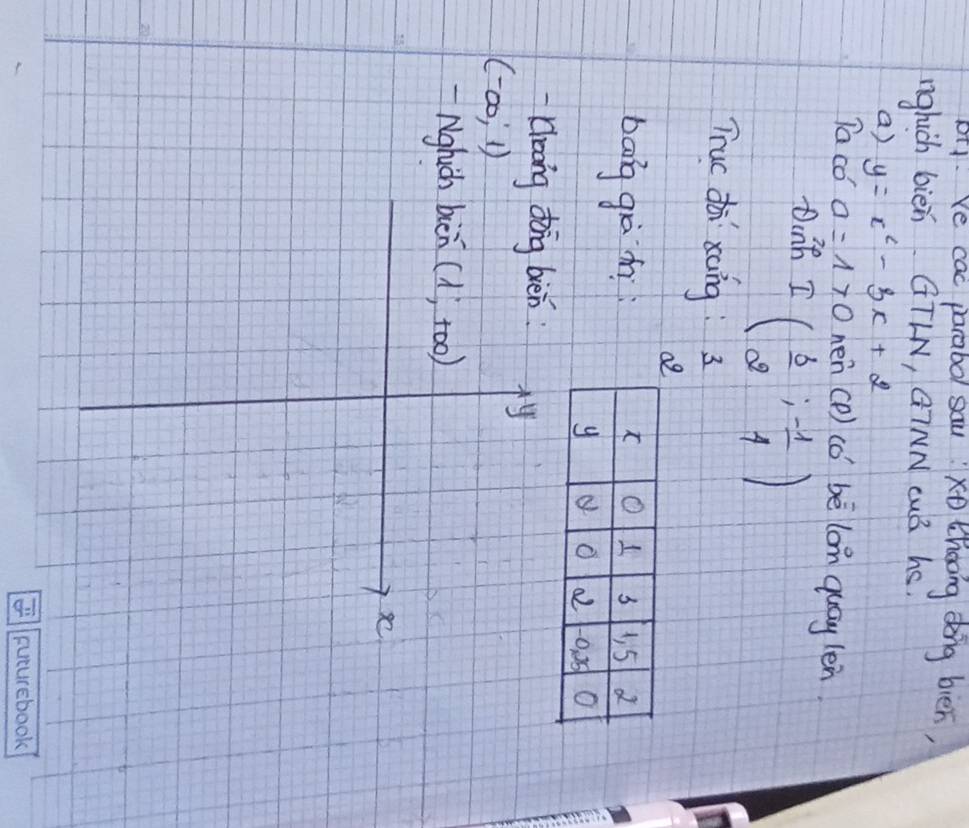 Bt1. Vẽ các parabol sau: XĐ khoảng đồng biến,
nghịch biến. GTLN, GTNN của hs.
a) y = x² - 3x + 2
Ta có a = 1 > 0 nên (P) có bề lõm quay lên.
Đỉnh I (3/2 ; -1/4)
Trục đối xứng: 3/2
bảng giá trị:
x 0 1 3 1,5 2
y 2 0 2 -0,25 0
- Khoảng đồng biến:
(-∞; 1)
- Nghịch biến (1; +∞)
y
x
Futurebook